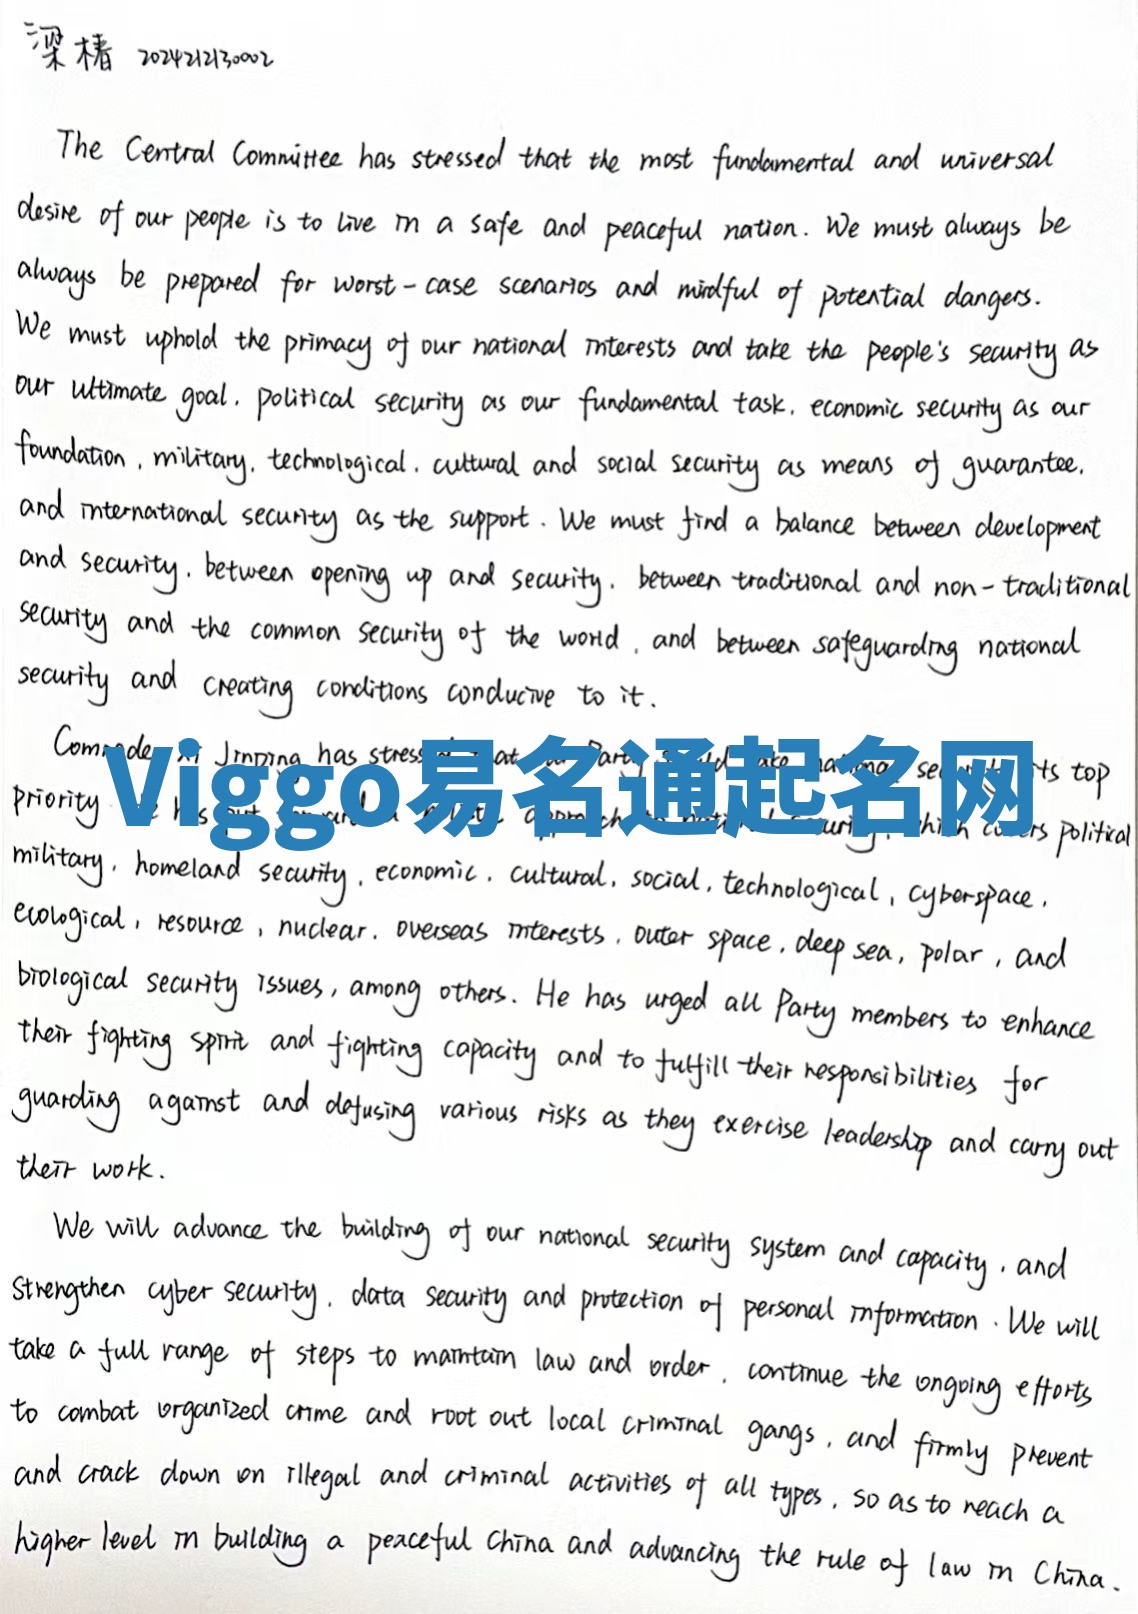 梁椿 2024212130002
The Central Committee has stressed that the most fundamental and universal
desire of our people is to live in a safe and peaceful nation. We must always be
always be prepared for worst-case scenarios and mindful of potential dangers.
We must uphold the primacy of our national interests and take the people's security as
our ultimate goal, political security as our fundamental task, economic security as our
foundation, military, technological, cultural and social security as means of guarantee,
and international security as the support. We must find a balance between development
and security, between opening up and security, between traditional and non-traditional
security and the common security of the world, and between safeguarding national
security and creating conditions conducive to it.
Comrade Xi Jinping has stressed that Party national its top
Viggo易名通起名网
priority has political
military, homeland security, economic, cultural, social, technological, cyberspace,
ecological, resource, nuclear, overseas interests, outer space, deep sea, polar, and
biological security issues, among others. He has urged all Party members to enhance
their fighting spirit and fighting capacity and to fulfill their responsibilities for
guarding against and defusing various risks as they exercise leadership and carry out
their work.
We will advance the building of our national security system and capacity, and
strengthen cyber security, data security and protection of personal information. We will
take a full range of steps to maintain law and order, continue the ongoing efforts
to combat organized crime and root out local criminal gangs, and firmly prevent
and crack down on illegal and criminal activities of all types, so as to reach a
higher level in building a peaceful China and advancing the rule of law in China.